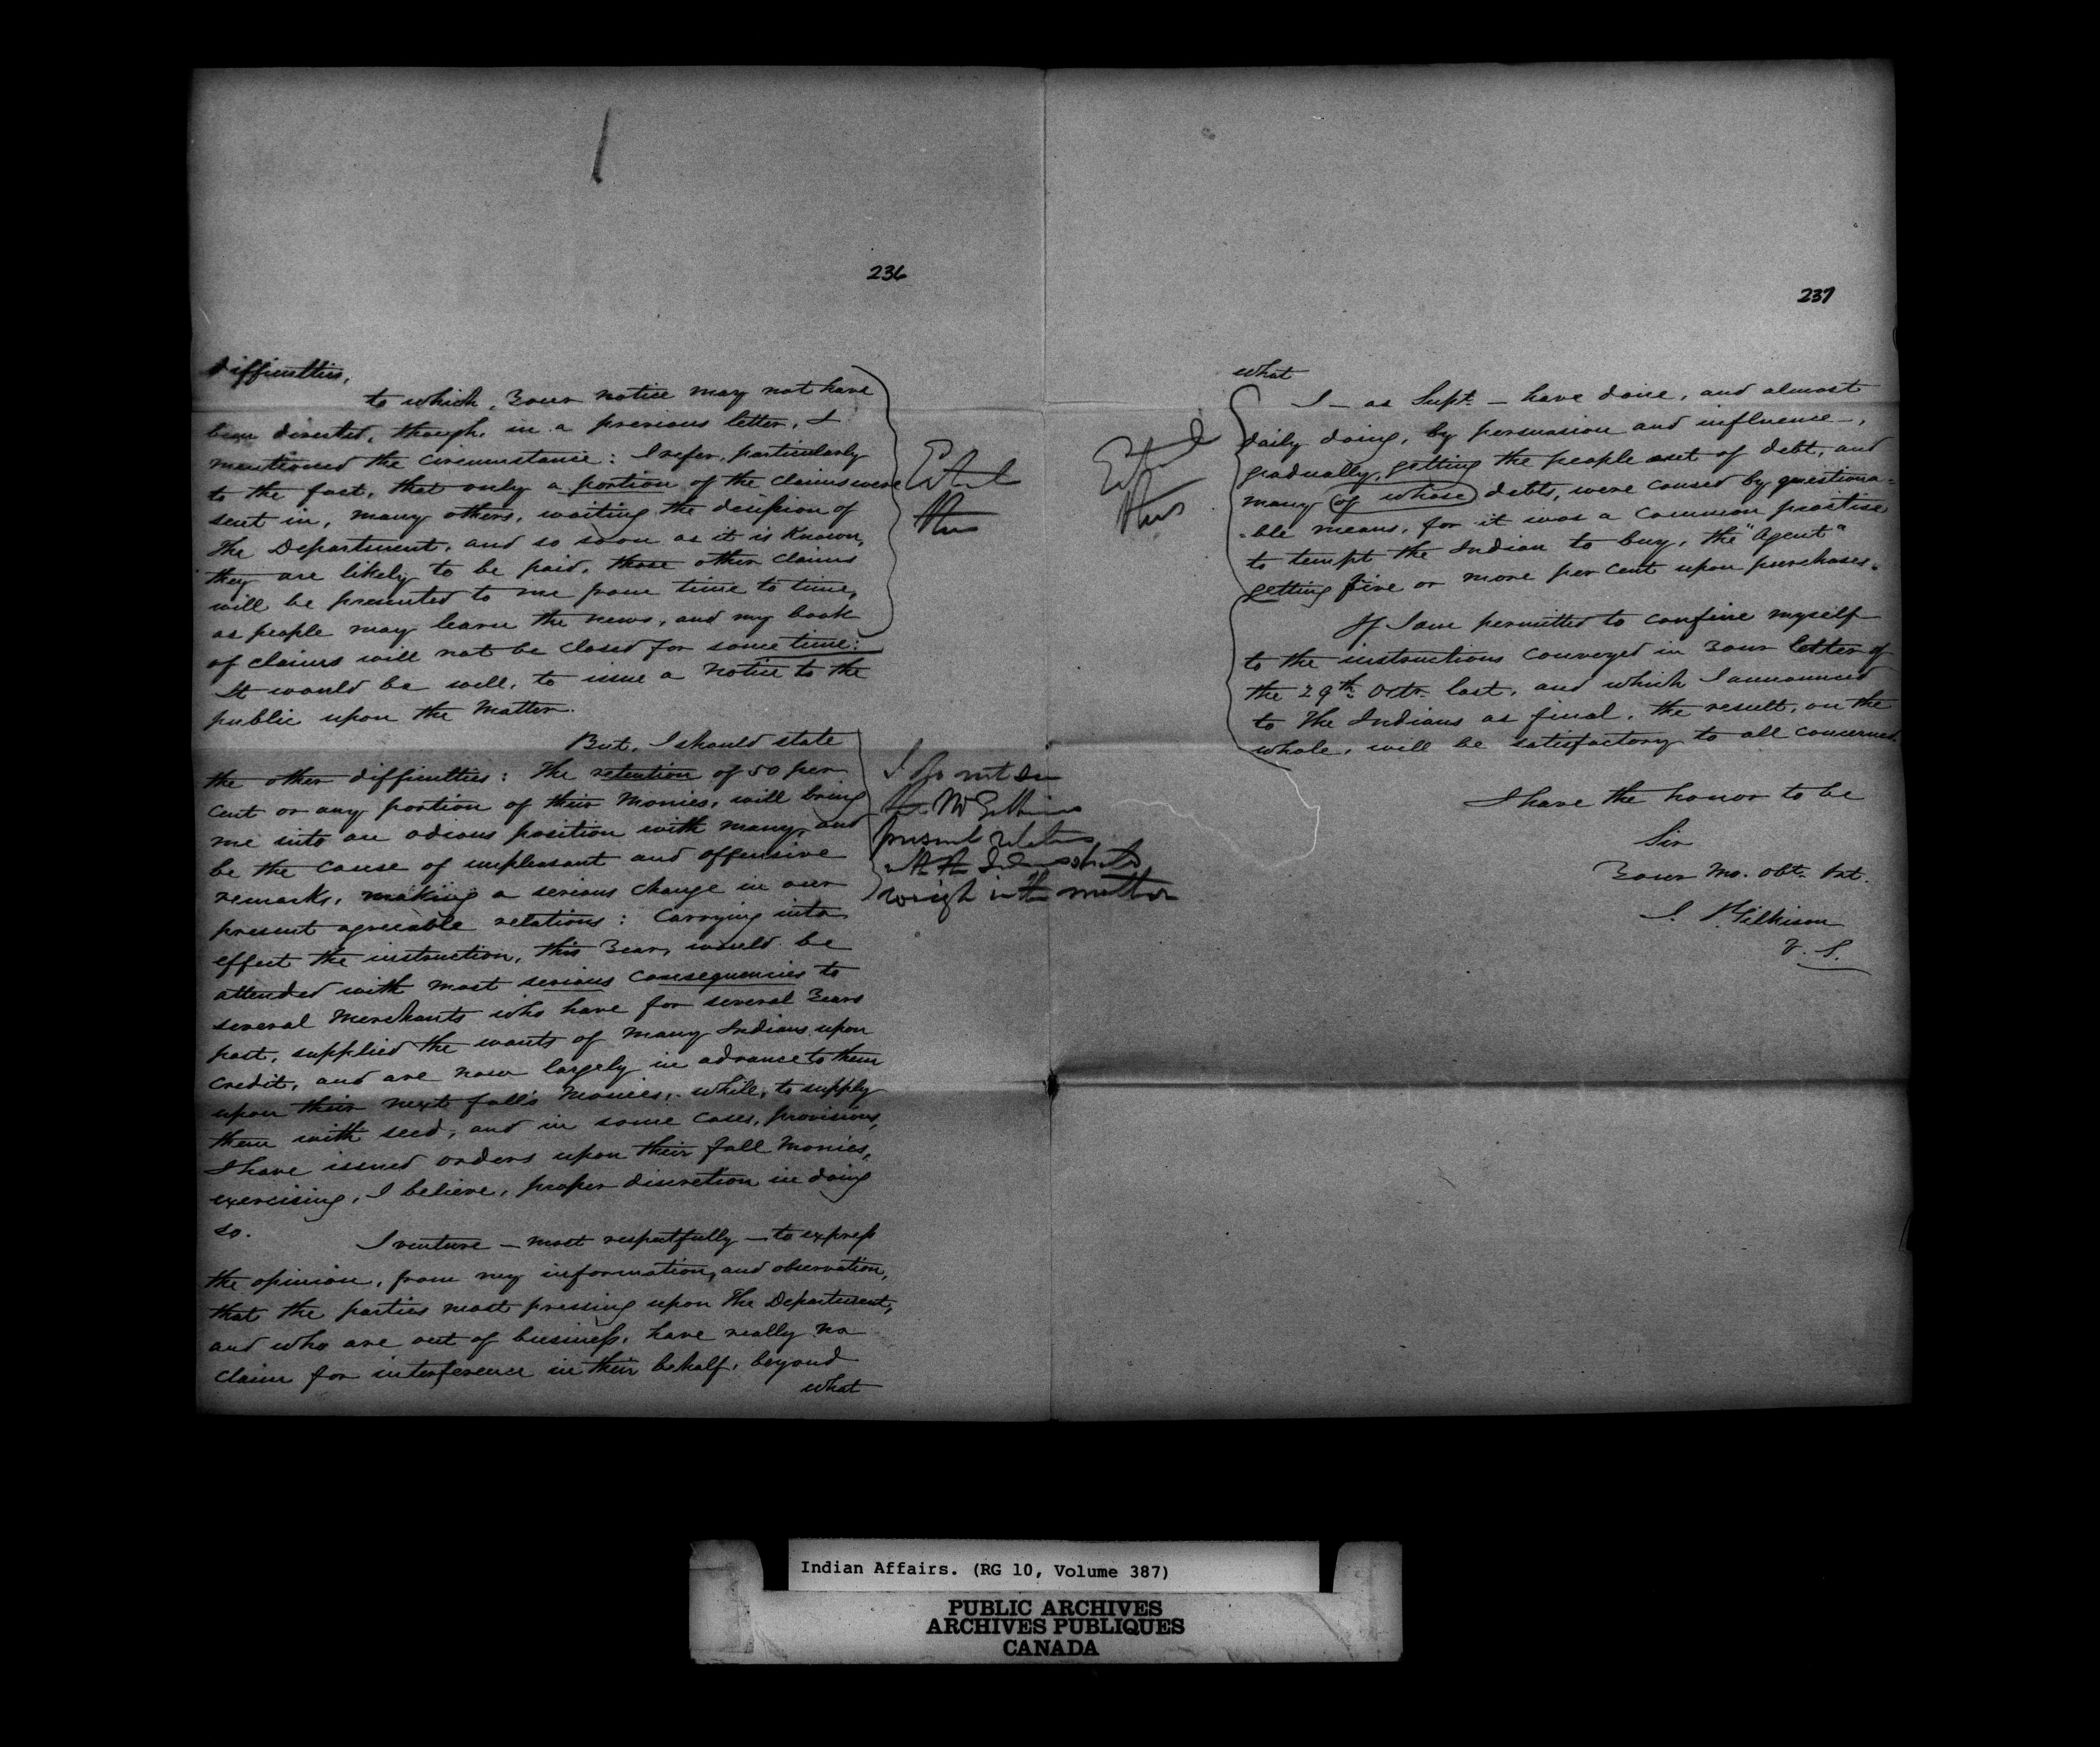 236
difficulties,
to which, Your notice may not have
been directed, though, in a previous letter, I
mentioned the circumstance: I refer, particularly
to the fact, that only a portion of the claims were
sent in, many others, waiting the decision of
The Department, and so soon as it is Known,
they are likely to be paid, those other claims
will be presented to me from time to time,
as people may learn the news, and my book
of claims will not be closed for some time:
It would be well, to issue a Notice to the
public upon the Matter.
But, I should state
the other difficulties: The retention of 50 per
cent or any portion of their Monies, will bring
me into an odious position with many, and
be the cause of unpleasant and offensive
remarks, making a serious change in our
present agreeable relations: Carrying into
effect the instruction, this Year, would be
attended with most serious consequencies to
several Merchants who have for several Years
past, supplied the wants of many Indians upon
Credit, and are now largely in advance to them
upon their next fall's Monies, while, to supply
them with seed, and in some cases, provisions,
I have issued orders upon their fall Monies,
exercising, I believe, proper discretion in doing
so.
I venture — most respectfully — to express
the opinion, from my information, and observation,
that the parties most pressing upon The Department,
and who are out of business, have really no
claim for interference in their behalf, beyond
what
Extract
thus
I do not see
present relations
with the Indians should
weigh in the matter
237
what
I — as Supt. — have done, and almost
daily doing, by persuasion and influence —,
gradually, getting the people out of debt, and
many (of whose) debts, were caused by questiona=
=ble means, for it was a common practise
to tempt the Indian to buy, the "Agent"
getting five or more per cent upon purchases.
If I am permitted to confine myself
to the instructions conveyed in Your letter of
the 29th. Octr. last, and which I announced
to The Indians as final, the result, on the
whole, will be satisfactory to all concerned.
Extract
thus
I have the honor to be
Sir
Your Mo. Obt. Svt.
J. Gilkison
V. S.
Indian Affairs. (RG 10, Volume 387)
PUBLIC ARCHIVES
ARCHIVES PUBLIQUES
CANADA